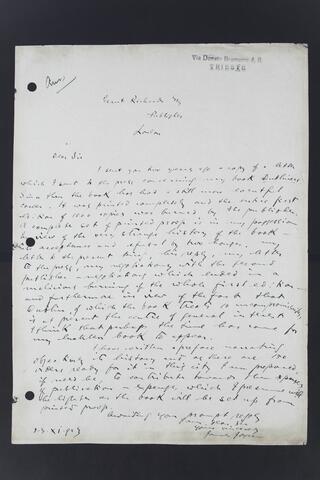 Via Donato Bramante 4, II
TRIESTE
Grant Richards Esq
Publisher
London
Dear Sir
I sent you two years ago a copy of a letter
which I sent to the press concerning my book Dubliners
Since then the book has had a still more eventful
career. It was printed completely and the entire first
edition of 1000 copies was burned by the publisher.
A complete set of printed proofs is in my possession
In view of the very strange history of the book —
its acceptance and refusal by two houses, my
letter to the present King, his reply, my letter
to the press, my negotiations with the second
publisher — negotiations which ended in
malicious burning of the whole first edition —
and furthermore in view of the fact that
Dublin, of which the book treats so uncompromisingly,
is at present the centre of general interest
I think that perhaps the time has come for
my luckless book to appear.
I have written a preface narrating
objectively its history and as there are 100
orders ready for it in this city I am prepared,
if need be, to contribute towards the expenses
of publication — expenses which I presume will
be lighter as the book will be set up from
printed proofs.
Awaiting your prompt reply
I am, dear Sir
Yours sincerely
James Joyce
23.XI.913